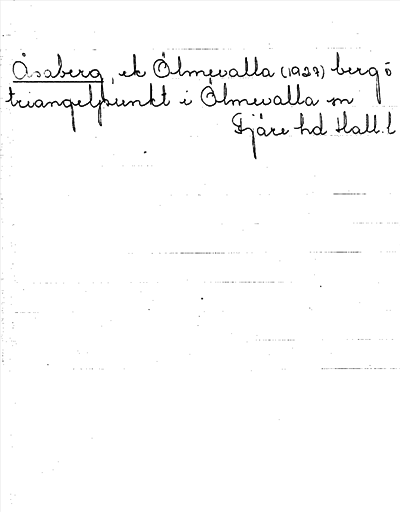 Åsaberg, ek Ölmevalla (1927) berg o
triangelpunkt i Ölmevalla sn
Fjäre hd Hall. l